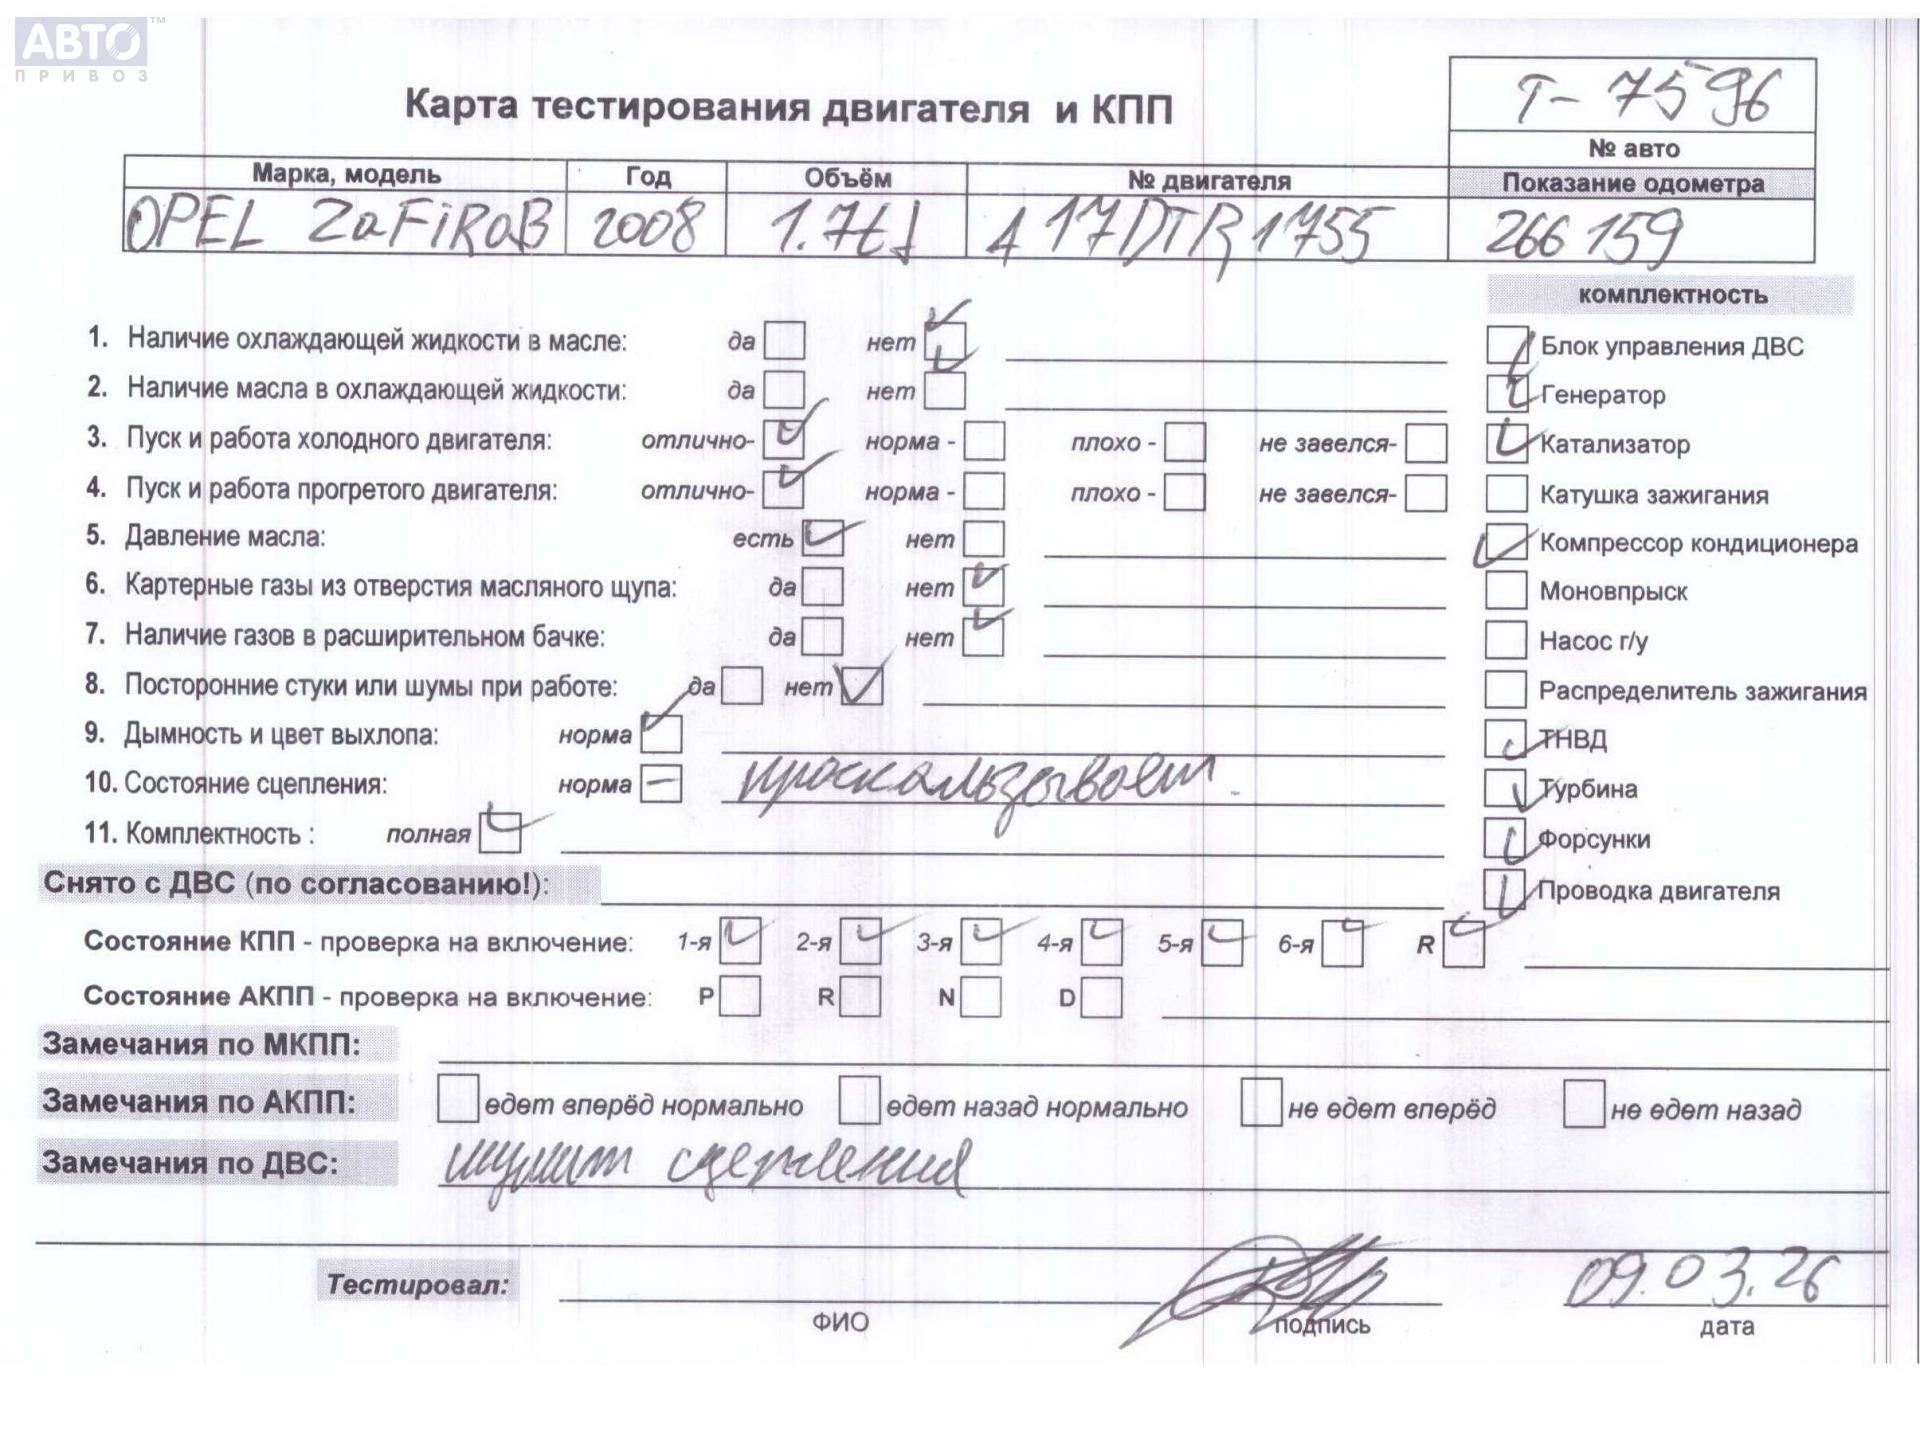 АВТО™
ПРИВОЗ
Карта тестирования двигателя и КПП
Т- 7596
№ авто
Марка, модель Год Объём № двигателя Показание одометра
OPEL ZaFiRaB 2008 1.7td A17DTR1755 266159
комплектность
1. Наличие охлаждающей жидкости в масле: да нет
Блок управления ДВС
2. Наличие масла в охлаждающей жидкости: да нет
Генератор
3. Пуск и работа холодного двигателя: отлично- норма - плохо - не завелся-
Катализатор
4. Пуск и работа прогретого двигателя: отлично- норма - плохо - не завелся-
Катушка зажигания
5. Давление масла: есть нет
Компрессор кондиционера
6. Картерные газы из отверстия масляного щупа: да нет
Моновпрыск
7. Наличие газов в расширительном бачке: да нет
Насос г/у
8. Посторонние стуки или шумы при работе: да нет
Распределитель зажигания
9. Дымность и цвет выхлопа: норма
ТНВД
10. Состояние сцепления: норма – проскальзывает
Турбина
11. Комплектность : полная
Форсунки
Снято с ДВС (по согласованию!):
Проводка двигателя
Состояние КПП - проверка на включение: 1-я 2-я 3-я 4-я 5-я 6-я R
Состояние АКПП - проверка на включение: P R N D
Замечания по МКПП:
Замечания по АКПП: едет вперёд нормально едет назад нормально не едет вперёд не едет назад
Замечания по ДВС: шумит сцепления
Тестировал: 09.03.26
ФИО подпись дата